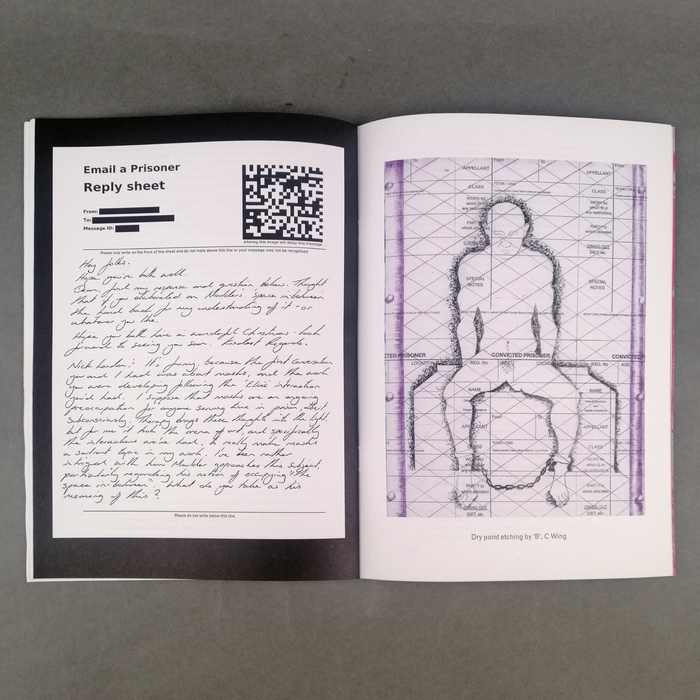 Email a Prisoner
Reply sheet
From:
To:
Message ID:
altering this image will delay this message.
Please only write on the front of this sheet and do not mark above this line or your message may not be recognised.
Hey folks.
Hope you're both well.
find my response and question below. Thought
that if you elaborated on Moulders 'space in-between'
the hand back for my understanding of it - or
whatever you like.
Hope you both have a wonderful Christmas. Look
forward to seeing you soon. Kindest Regards.
Nick London: It's funny because the first conversation
you and I had was about masks, and the work
you were developing following the internship
you'd had. I suppose that masks are an ongoing
preoccupation for anyone serving time in prison, albeit
subconsciously. Therapy brings these thoughts into the light,
but for me it took the arena of art, and specifically
the interactions we've had, to really make masks
a salient topic in my work. I've been rather
intrigued with how Moulder approaches this subject,
particularly regarding his notion of occupying "the
space in between". What do you take as his
meaning of this?
Please do not write below this line.
To
From
APPELLANT
CLASS
WORK for
PART to
SPECIAL
NOTES
CONVICTED PRISONER
LOCATION
REG. No
AGE
NAME
From
To
APPELLANT
CLASS
DIET, etc.
Dry point etching by 'B', C Wing